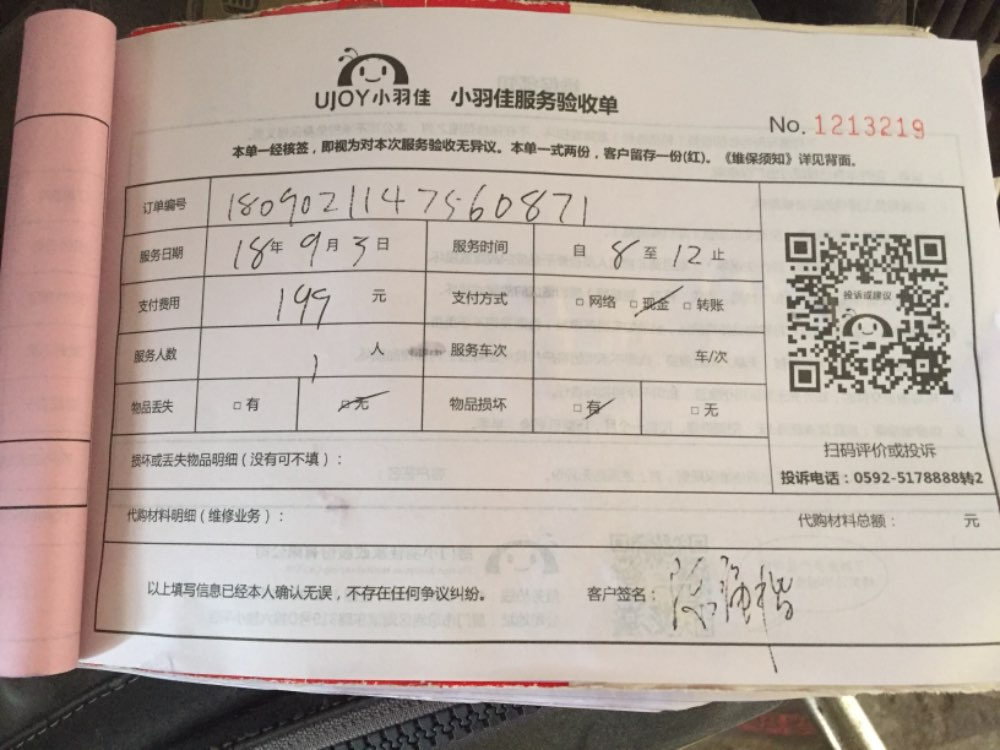 UJOY小羽佳 小羽佳服务验收单
No. 1213219
本单一经核签，即视为对本次服务验收无异议。本单一式两份，客户留存一份(红)。《维保须知》详见背面。
订单编号 1809021147560871
服务日期 18年 9月 3日 服务时间 自 8 至 12 止
支付费用 199 元 支付方式 □网络 □现金 □转账
服务人数 1 人 服务车次 车/次
物品丢失 □有 □无 物品损坏 □有 □无
投诉或建议
扫码评价或投诉
投诉电话：0592-5178888转2
损坏或丢失物品明细（没有可不填）：
代购材料明细（维修业务）： 代购材料总额： 元
以上填写信息已经本人确认无误，不存在任何争议纠纷。 客户签名：